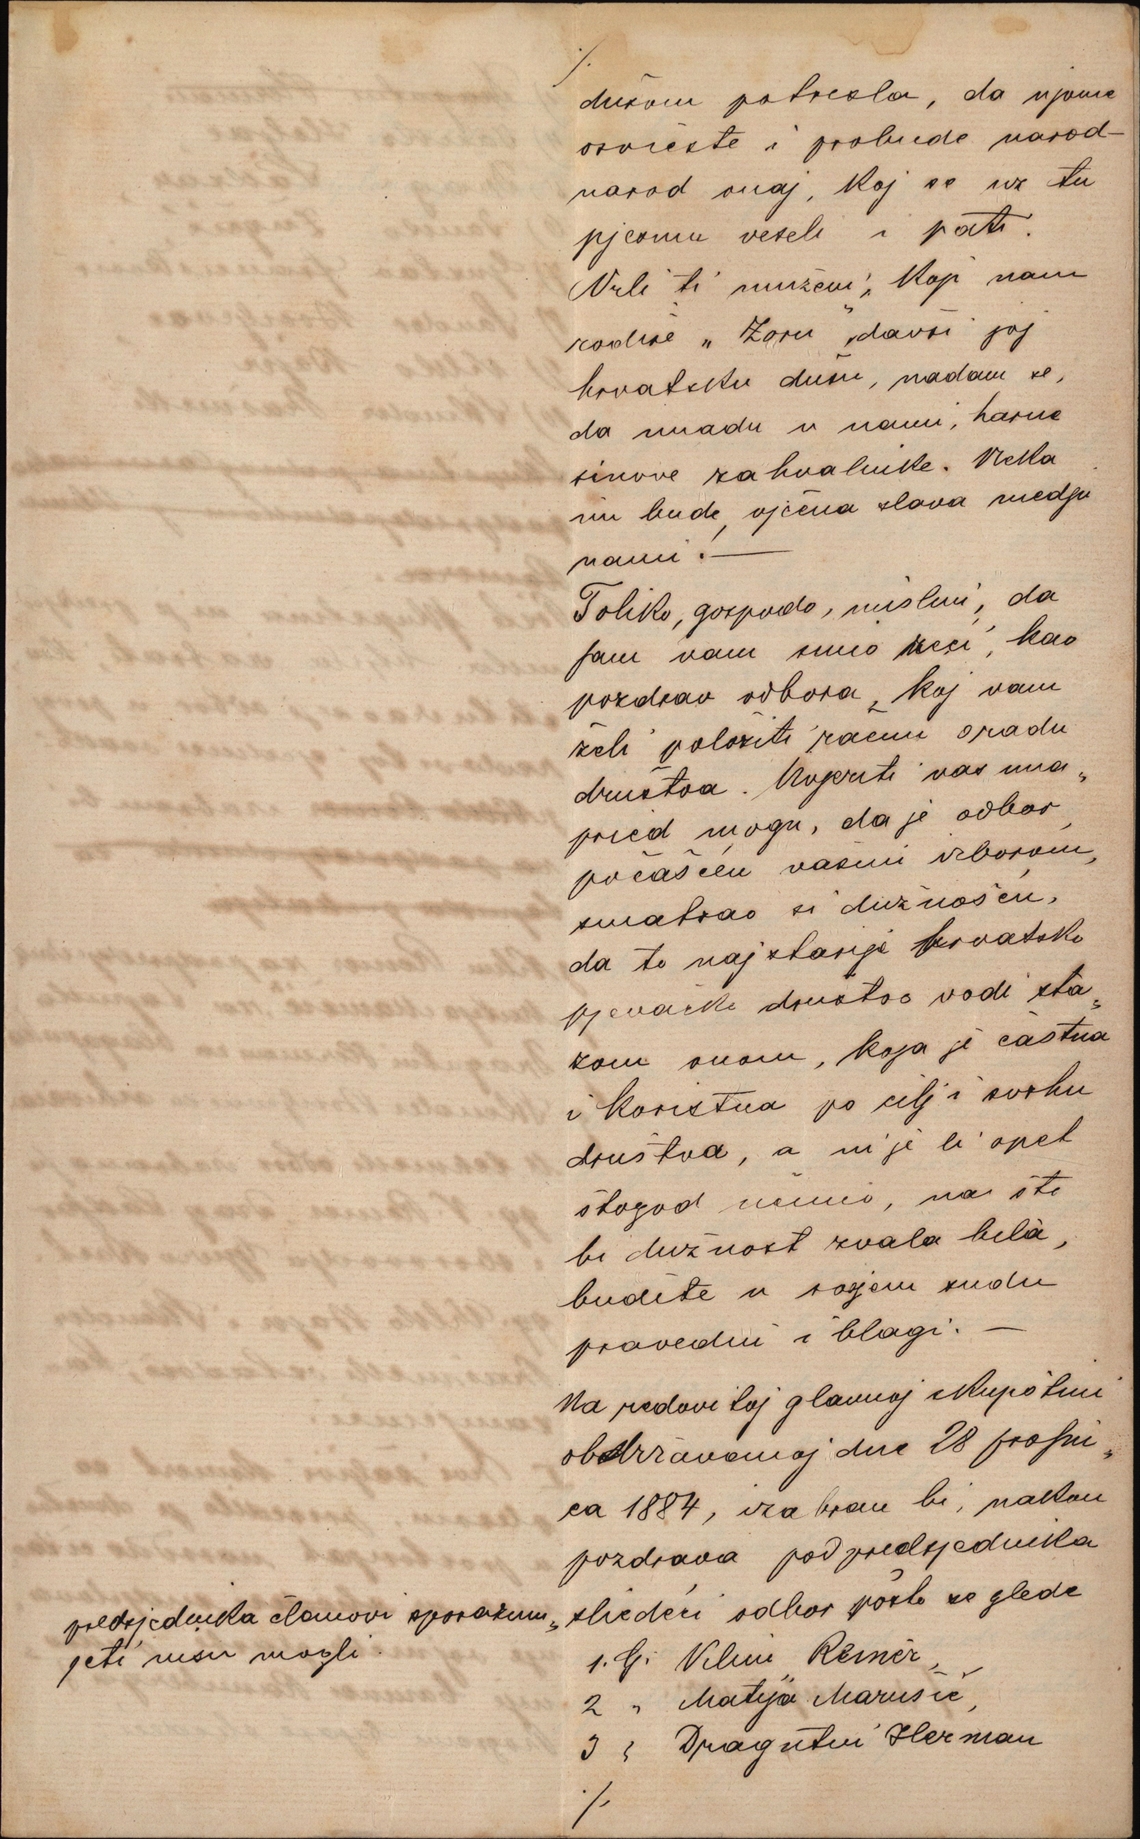 ./.
dušom potresla, da njome
osvieste i probude narod –
narod onaj, koj se uz tu
pjesmu veseli i pati.
Vrli ti muževi, koji nam
rodiše „Zoru“, davši joj
hrvatsku dušu, nadam se,
da imadu u nami, harne
sinove zahvalnike. Neka
im bude vječna slava medju
nami! —
Toliko, gospodo, mislim, da
sam vam smio reći, kao
pozdrav odbora, koj vam
želi položiti račun o radu
družtva. Uvjeriti vas una„
pried mogu, da je odbor
počašćen vašim izborom,
smatrao si dužnošću,
da to najstarije hrvatsko
pjevačko družtvo vodi sta„
zom onom, koja je častna
i koristna po cilj i svrhu
družtva, a nije li opet
štogod učinio, na što
bi dužnost zvala bila,
budite u svojem sudu
pravedni i blagi. —
Na redovitoj glavnoj skupštini
obdržavanoj dne 28 prosin„
ca 1884, izabran bi, nakon
pozdrava podpredsjednika
sliedeći odbor pošto se glede
predsjednika članovi sporazum„
jeti nisu mogli.
1. G. Vilim Remér,
2 „ Matija Marušić,
3 „ Dragutin Herman
./.